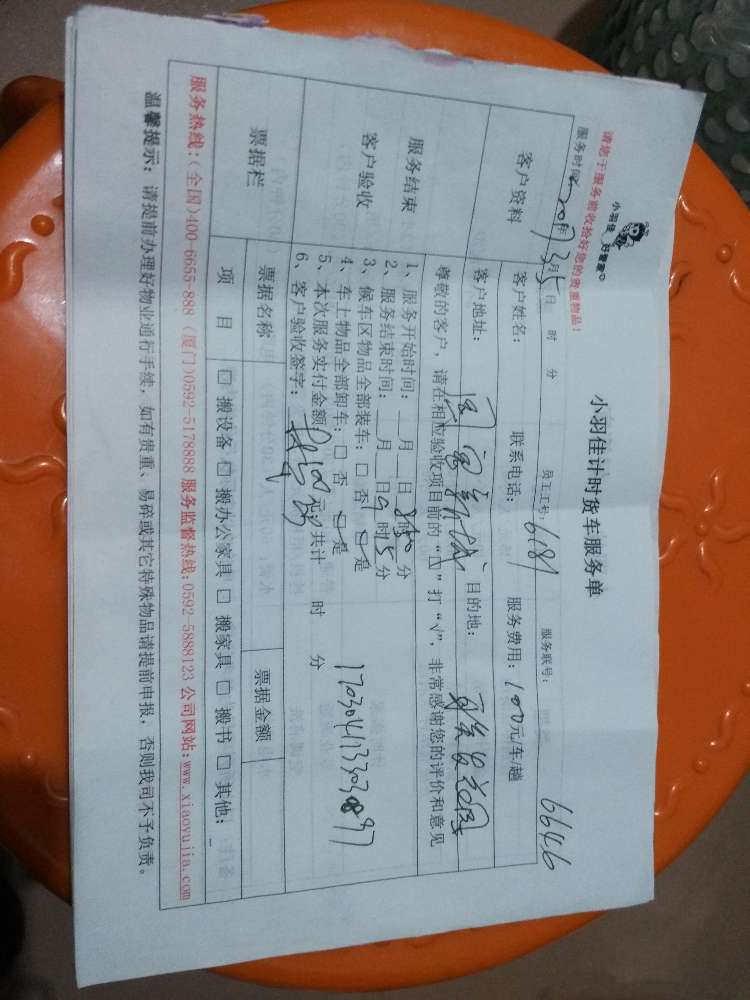 小羽佳 好管家
小羽佳计时货车服务单
请您于服务前收拾好您的贵重物品！
服务时间: 2017年3月5日 时 分 员工工号: 6181 服务联号: 6646
客户资料
客户姓名: 联系电话: 服务费用: 100元/车/趟
客户地址: 目的地:
服务结束
客户验收
尊敬的客户，请在相应验收项目前的“□”打“√”，非常感谢您的评价和意见
1、服务开始时间: 月 日8时50分
2、服务结束时间: 月 日9时15分
3、候车区物品全部装车: □否 □是
4、车上物品全部卸车: □否 □是
5、本次服务实付金额: 100元 共计 时 分
6、客户验收签字:
17030411330897
票据栏
票据名称 票据金额
项目 □搬设备 □搬办公家具 □搬家具 □搬书 □其他:
服务热线:(全国)400-6655-888 (厦门)0592-5178888 服务监督热线:0592-5888123 公司网站:www.xiaoyujia.com
温馨提示: 请提前办理好物业通行手续，如有贵重、易碎或其它特殊物品请提前申报，否则我司不予负责。